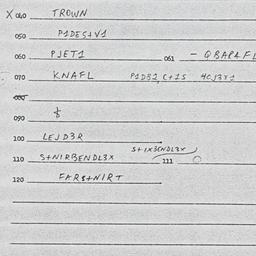 X 040 TROWN
050 P1DES+V1
060 PJET1 061 - QBAPAFL
070 KNAFL P1DB2, C+1S 4CJ3Y1
080
090 $
100 LEJD3R
S+1X3ENDL3X
110 S+NIRBENDL3X 111
120 FARS+NIRT